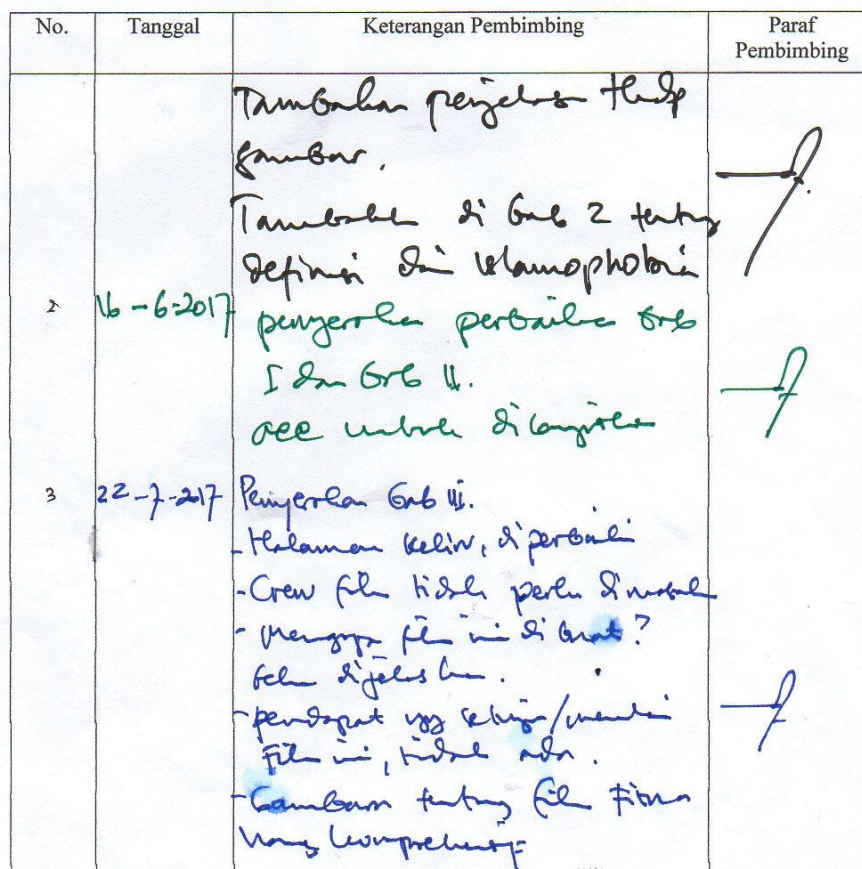 No. Tanggal Keterangan Pembimbing Paraf Pembimbing
Tambahan penjelasan thdp
gambar.
Tambahan di bab 2 tentang
definisi dan Islamophobia
2 16-6-2017 penyerahan perbaikan bab
I dan bab II.
acc untuk dilanjutkan
3 22-7-2017 Penyerahan bab III.
- Halaman keliru, diperbaiki
- Crew film tidak perlu dimasukkan
- Mengapa film ini dibuat?
belum dijelaskan.
- pendapat yg setuju/menolak
Film ini, tidak ada.
- Gambaran tentang film Fitna
kurang komprehensif